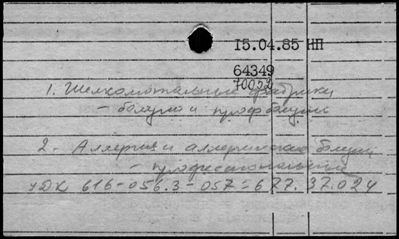 15.04.85 НП
64349
70052
1. Шелкомотальные фабрики
- болезни и профболезни
2. Аллергия и аллергические болезни
- профессиональные
УДК 616-056.3-057=677.37.024